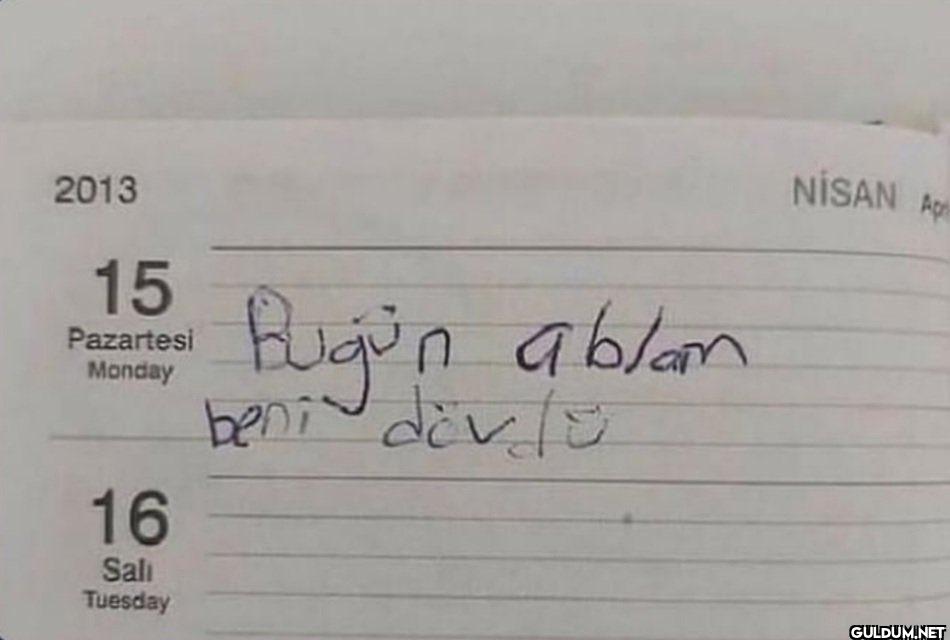 2013 NİSAN
15
Pazartesi
Monday
Bugün ablam
beni dövdü
16
Salı
Tuesday
GULDUM.NET